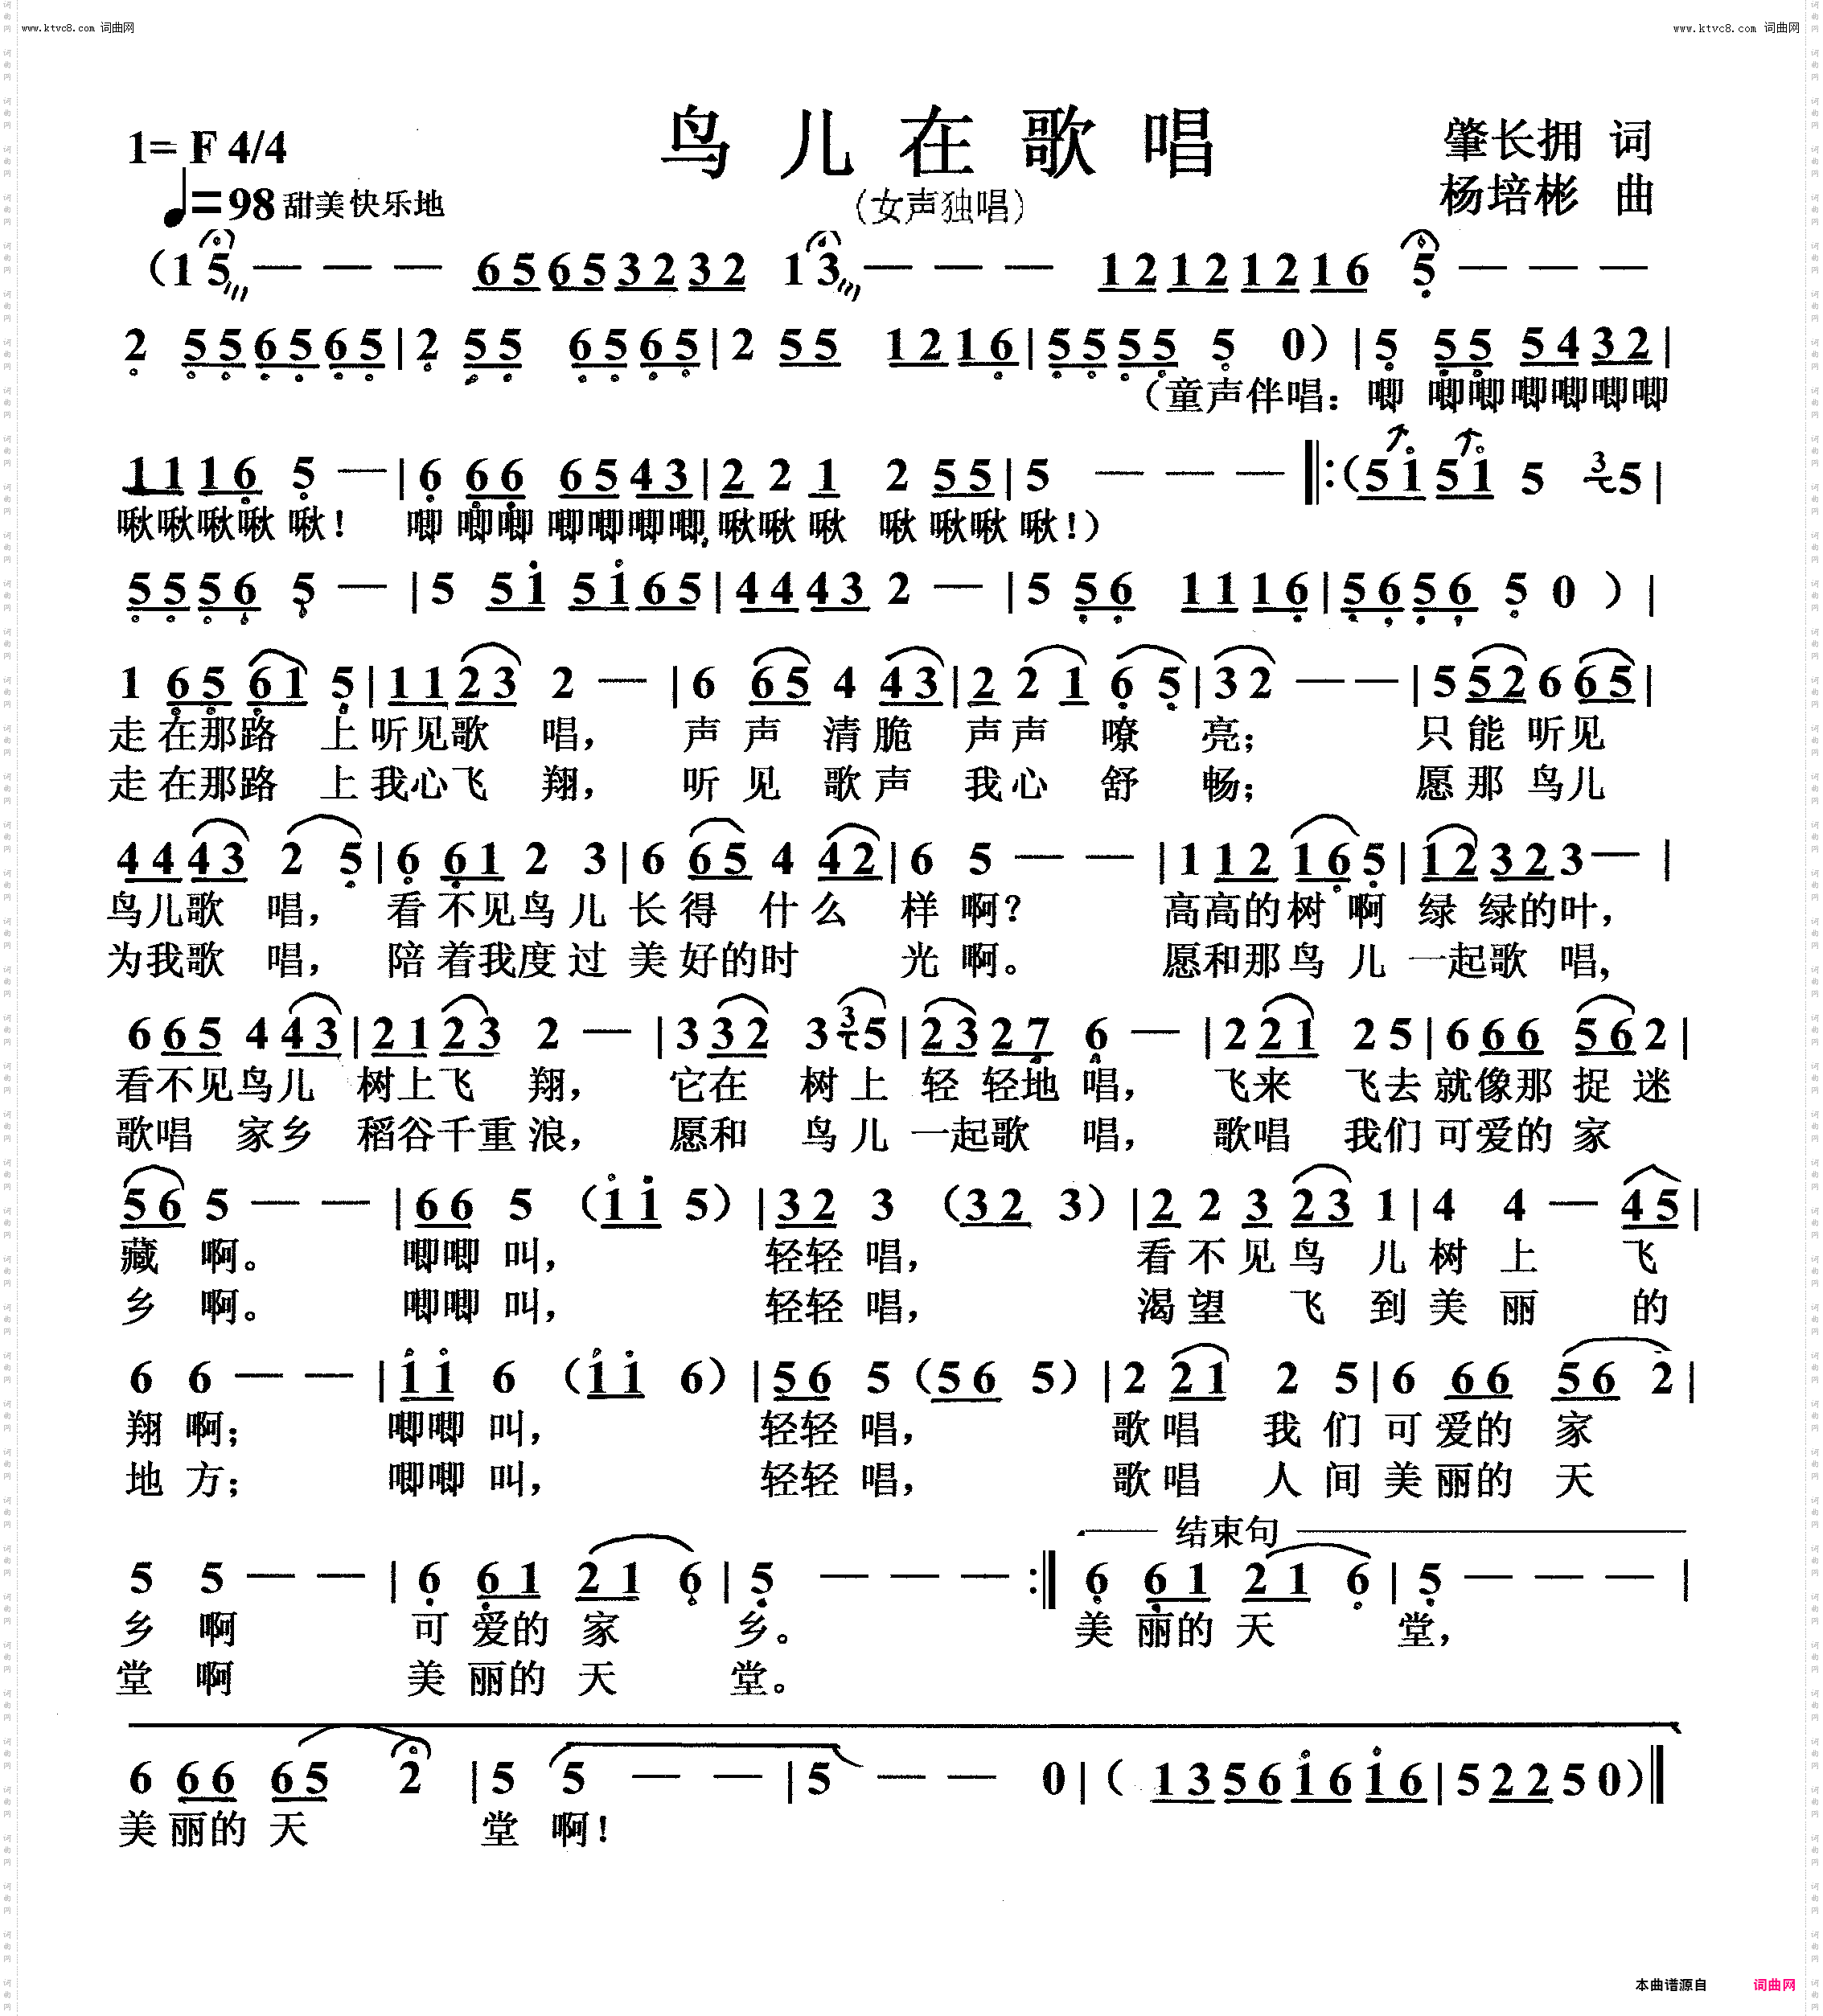 www.ktvc8.com 词曲网
www.ktvc8.com 词曲网
鸟儿在歌唱
1= F 4/4
肇长拥 词
♩=98 甜美快乐地
(女声独唱)
杨培彬 曲
(1 5 — — — 6 5 6 5 3 2 3 2 1 3 — — — 1 2 1 2 1 2 1 6 5 — — —
2 5 5 6 5 6 5 | 2 5 5 6 5 6 5 | 2 5 5 1 2 1 6 | 5 5 5 5 5 0) | 5 5 5 5 4 3 2 |
(童声伴唱: 唧 唧唧唧唧唧唧
1 1 1 6 5 — | 6 6 6 6 5 4 3 | 2 2 1 2 5 5 | 5 — — — ‖: (5 i 5 i 5 3 5 |
啾啾啾啾 啾! 唧 唧唧 唧唧唧唧, 啾啾 啾 啾 啾啾 啾!)
5 5 5 6 5 — | 5 5 i 5 i 6 5 | 4 4 4 3 2 — | 5 5 6 1 1 1 6 | 5 6 5 6 5 0 ) |
1 6 5 6 1 5 | 1 1 2 3 2 — | 6 6 5 4 4 3 | 2 2 1 6 5 | 3 2 — — | 5 5 2 6 6 5 |
走 在那路 上 听见歌 唱, 声 声 清 脆 声声 嘹 亮; 只 能 听见
走 在那路 上 我心飞 翔, 听 见 歌 声 我心 舒 畅; 愿 那 鸟儿
4 4 4 3 2 5 | 6 6 1 2 3 | 6 6 5 4 4 2 | 6 5 — — | 1 1 2 1 6 5 | 1 2 3 2 3 — |
鸟儿歌 唱, 看 不见鸟 儿 长 得 什 么 样 啊? 高高的树 啊 绿 绿的叶,
为我歌 唱, 陪 着我度 过 美 好的时 光 啊。 愿和那鸟 儿 一起歌 唱,
6 6 5 4 4 3 | 2 1 2 3 2 — | 3 3 2 3 3 5 | 2 3 2 7 6 — | 2 2 1 2 5 | 6 6 6 5 6 2 |
看不见鸟儿 树上飞 翔, 它在 树 上 轻 轻地 唱, 飞来 飞去 就像那 捉 迷
歌唱 家乡 稻谷千重 浪, 愿和 鸟 儿 一起歌 唱, 歌唱 我们 可爱的 家
5 6 5 — — | 6 6 5 (i i 5) | 3 2 3 (3 2 3) | 2 2 3 2 3 1 | 4 4 — 4 5 |
藏 啊。 唧唧 叫, 轻轻 唱, 看 不 见 鸟 儿 树 上 飞
乡 啊。 唧唧 叫, 轻轻 唱, 渴 望 飞 到 美 丽 的
6 6 — — | i i 6 (i i 6) | 5 6 5 (5 6 5) | 2 2 1 2 5 | 6 6 6 5 6 2 |
翔 啊; 唧唧 叫, 轻轻 唱, 歌 唱 我 们 可 爱的 家
地 方; 唧唧 叫, 轻轻 唱, 歌 唱 人 间 美 丽的 天
结束句
5 5 — — | 6 6 1 2 1 6 | 5 — — — :‖ 6 6 1 2 1 6 | 5 — — — |
乡 啊 可 爱的 家 乡。 美 丽的 天 堂,
堂 啊 美 丽的 天 堂。
6 6 6 6 5 2 | 5 5 — — | 5 — — 0 | ( 1 3 5 6 i 6 i 6 | 5 2 2 5 0) ‖
美 丽的 天 堂 啊!
本曲谱源自 词曲网